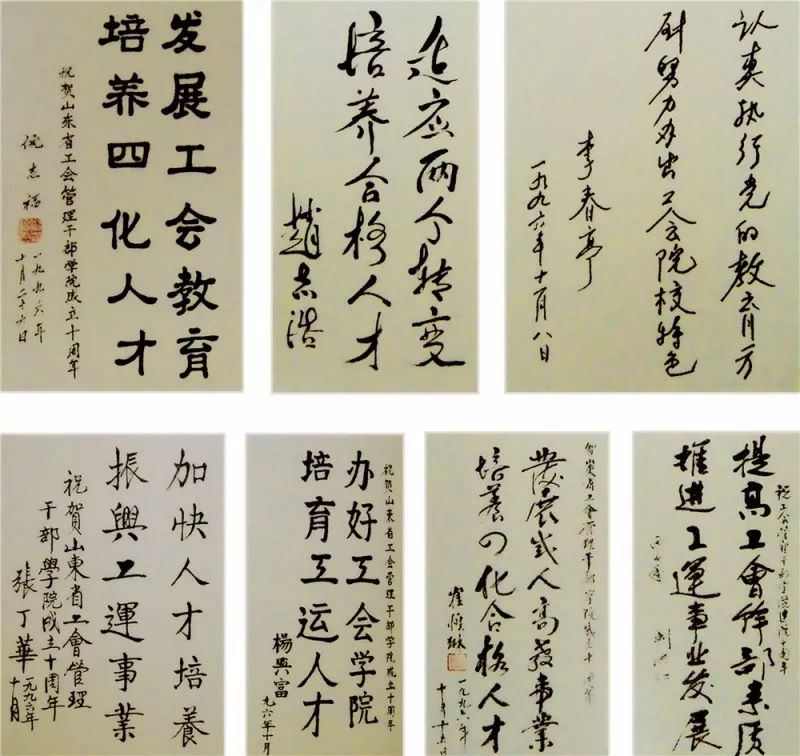 发展工会教育
培养四化人才
祝贺山东省工会管理干部学院成立十周年
倪志福
一九九六年
十月二十六日
适应两个转变
培养合格人才
趙志浩
认真执行党的教育方
针努力办出工会院校特色
李春亭
一九九六年十一月八日
加快人才培養
振興工運事業
祝賀山東省工會管理
干部學院成立十周年
張丁華
一九九六年
十月
祝贺山东省工会管理干部学院成立十周年
办好工会学院
培育工运人才
楊興富
九六年十月
省工會管理干部学院成立十周年
發展成人高教事業
培養四化合格人才
崔惟琳
一九九六年
十月十五日
提高工會幹部素质
推進工運事业发展